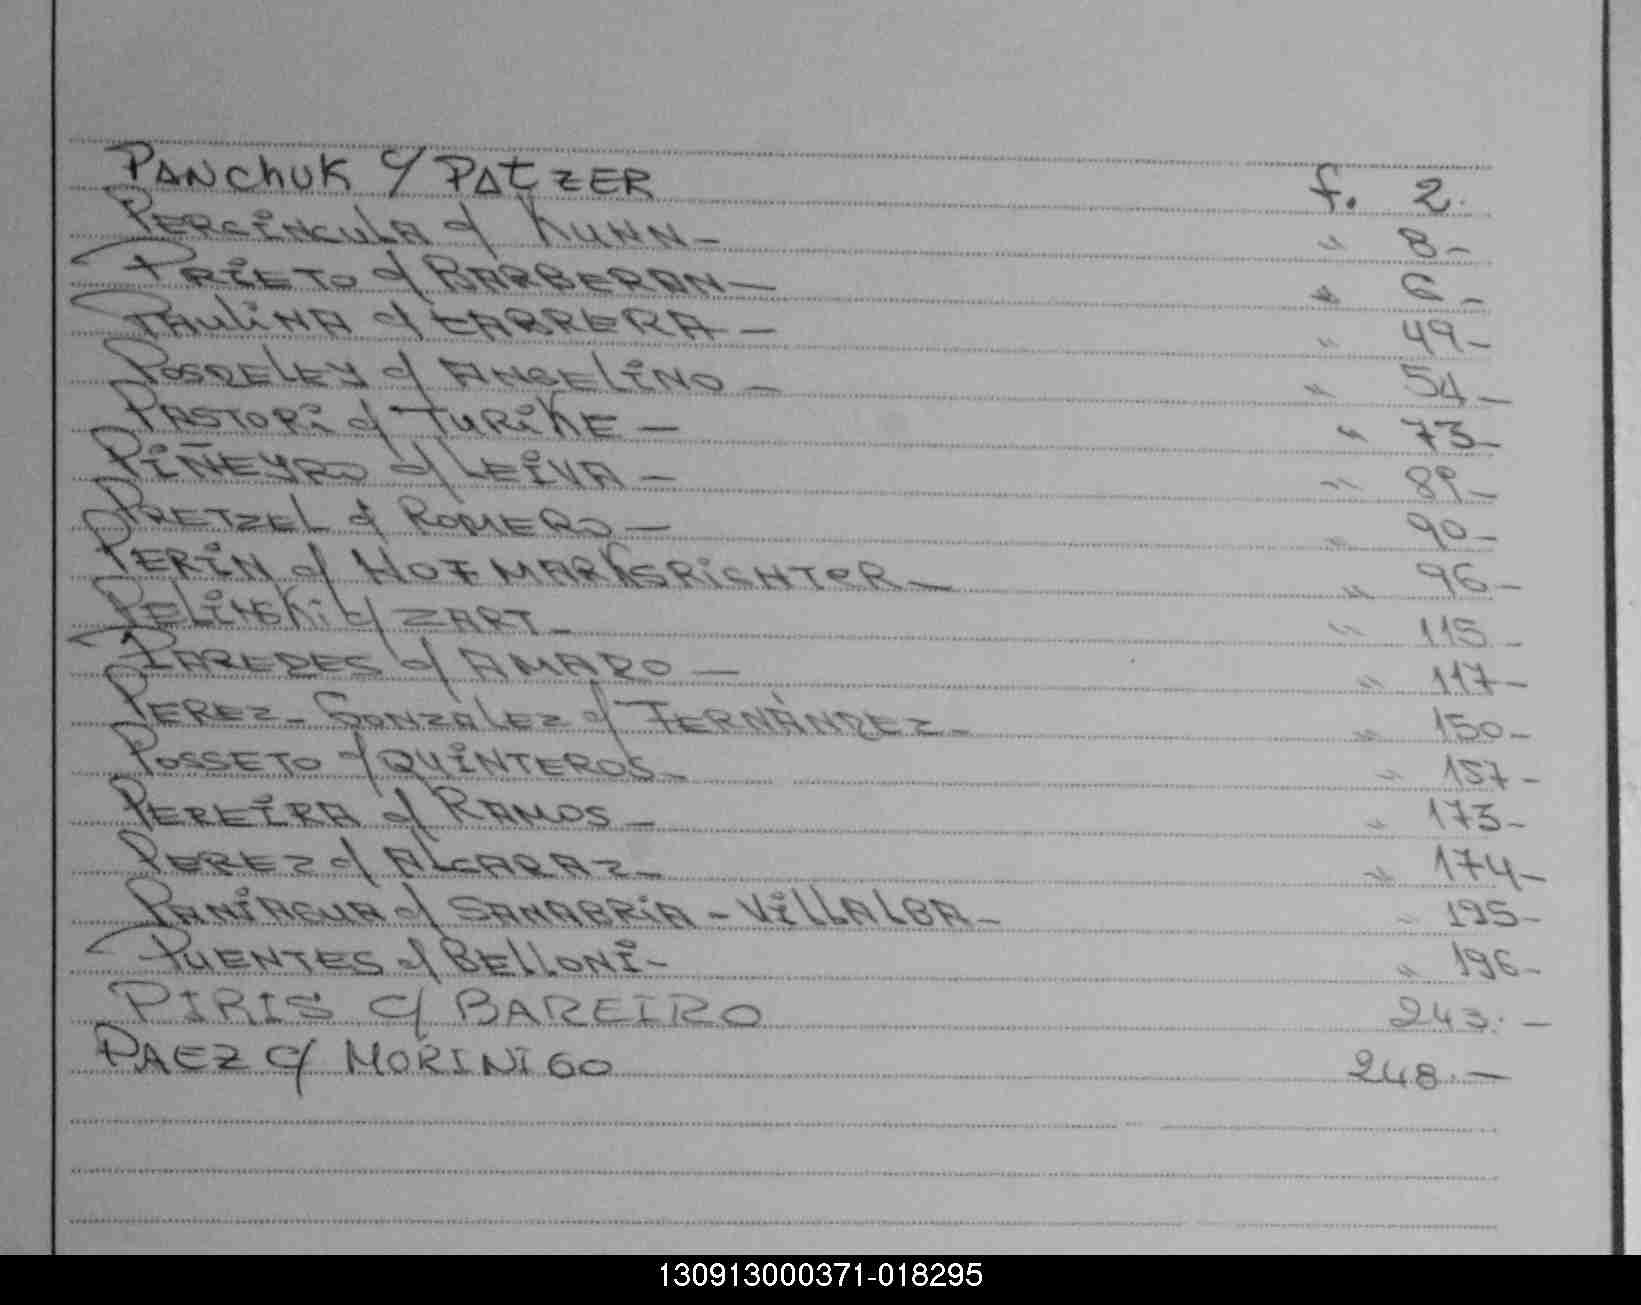 PANCHUK c/ PATZER f. 2.
PERCINCULA c/ KUNN - " 8 -
PRIETO c/ BARBERAN - " 6 -
PAULINA c/ CABRERA - " 49 -
POSDELEY c/ ANGELINO - " 54 -
PASTORI c/ TURIKE - " 73 -
PIÑEYRO c/ LEIVA - " 89 -
PRETZEL c/ ROMERO - " 90 -
PERIN c/ HOFMARKSRICHTER - " 96 -
PELINSKI c/ ZART - " 115 -
PAREDES c/ AMARO - " 117 -
PEREZ - GONZALEZ c/ FERNÁNDEZ - " 150 -
POSSETO c/ QUINTEROS - " 157 -
PEREIRA c/ RAMOS - " 173 -
PEREZ c/ ALCARAZ - " 174 -
PANIAGUA c/ SANABRIA - VILLALBA - " 195 -
PUENTES c/ BELLONI - " 196 -
PIRIS c/ BAREIRO 243. -
PAEZ c/ MORINIGO 248. -
130913000371-018295